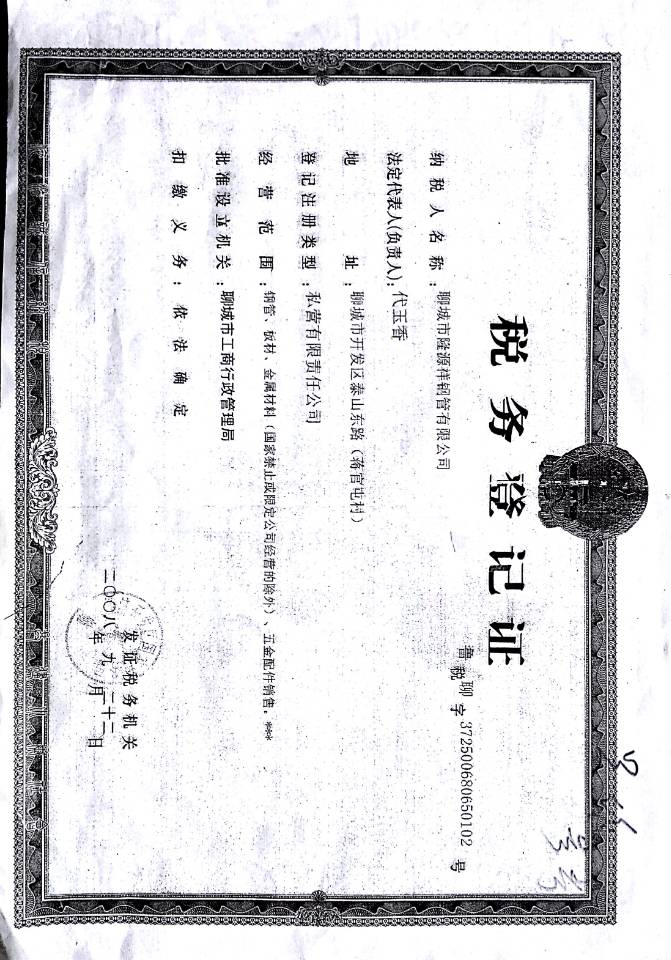 税务登记证
鲁税聊字372500680650102号
纳税人名称：聊城市隆源祥钢管有限公司
法定代表人(负责人)：代玉香
地址：聊城市开发区泰山东路（蒋官屯村）
登记注册类型：私营有限责任公司
经营范围：钢管、板材、金属材料（国家禁止或限定公司经营的除外）、五金配件销售。***
批准设立机关：聊城市工商行政管理局
扣缴义务：依法确定
发证税务机关
二〇〇八年九月二十二日